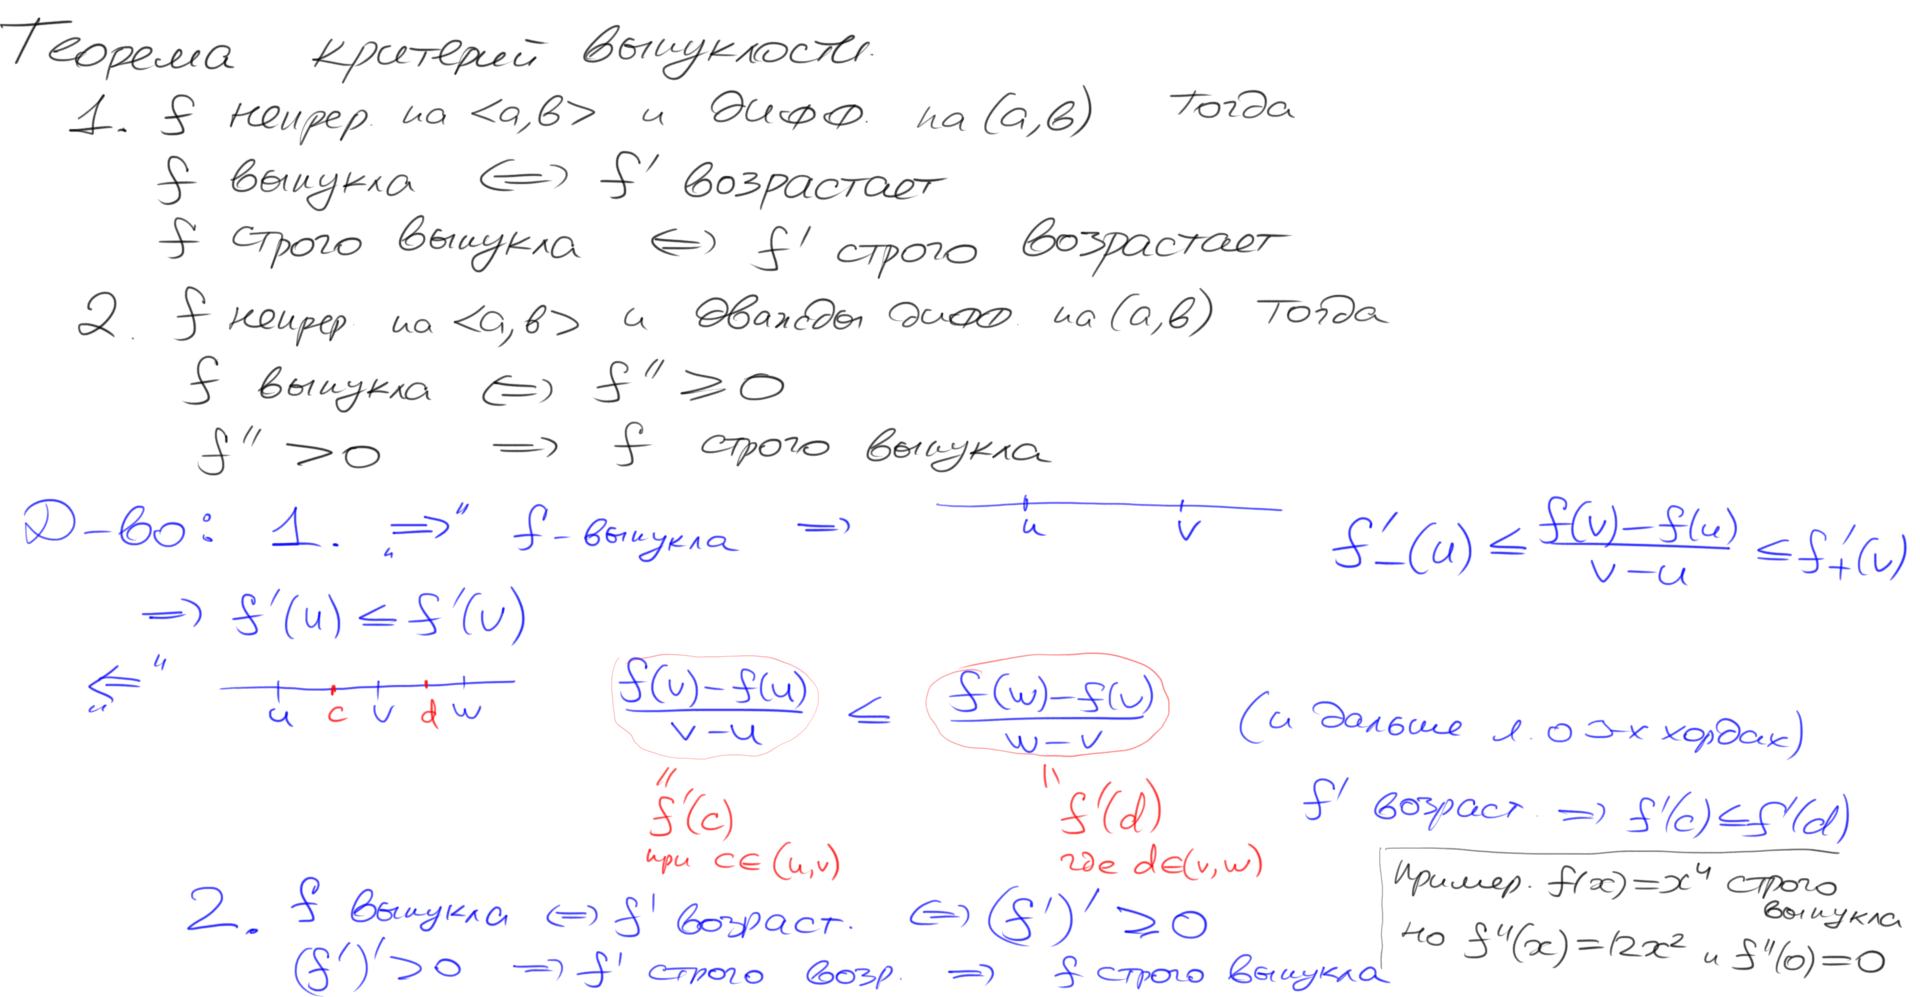 Теорема критерий выпуклости.
1. f непрер. на <a,b> и дифф. на (a,b) Тогда
f выпукла <=> f' возрастает
f строго выпукла <=> f' строго возрастает
2. f непрер на <a,b> и дважды дифф. на (a,b) Тогда
f выпукла <=> f'' ⩾ 0
f'' > 0 => f строго выпукла
Д-во: 1. "=>" f - выпукла => u v f'₋(u) ≤ (f(v)-f(u))/(v-u) ≤ f'₊(v)
=> f'(u) ≤ f'(v)
"<=" u c v d w (f(v)-f(u))/(v-u) ≤ (f(w)-f(v))/(w-v) (и дальше л. о 3-х хордах)
" f'(c) при c∈(u,v)
" f'(d) где d∈(v,w)
f' возраст. => f'(c) ≤ f'(d)
2. f выпукла <=> f' возраст. <=> (f')' ⩾ 0
(f')' > 0 => f' строго возр. => f строго выпукла
Пример. f(x)=x⁴ строго
выпукла
но f''(x)=12x² и f''(0)=0